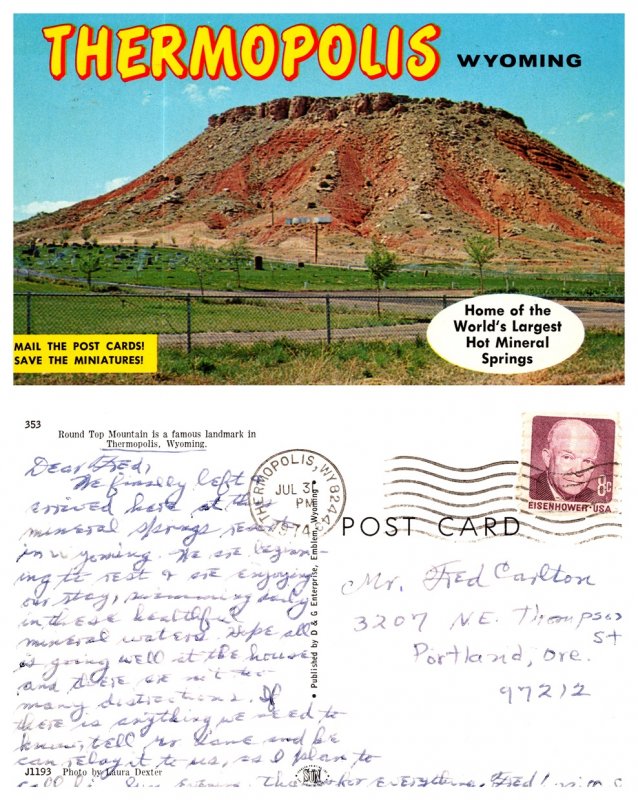 THERMOPOLIS WYOMING
Home of the
World's Largest
Hot Mineral
Springs
MAIL THE POST CARDS!
SAVE THE MINIATURES!
353
Round Top Mountain is a famous landmark in
Thermopolis, Wyoming.
THERMOPOLIS, WY 82443
JUL 3
PM
1974
8c
EISENHOWER·USA
POST CARD
Published by D & G Enterprise, Emblem, Wyoming
Dear Fred,
We finally left &
arrived here at this
mineral springs resort
in Wyoming. We are beginn-
ing to rest & are enjoying
our stay, swimming daily
in these healthful
mineral waters. Hope all
is going well at the house
and there are not too
many distractions. If
there is anything we need to
know, tell and he
can relay it to us, as I plan to
call him everything, Fred!
Mr. Fred Carlton
3207 N.E. Thompson
St
Portland, Ore.
97212
J1193 Photo by Laura Dexter